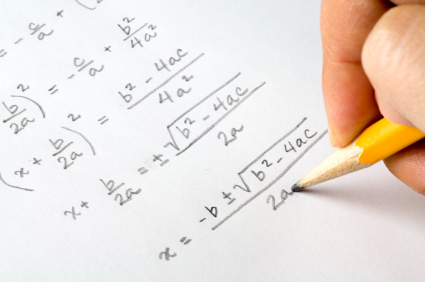 = -c/a + (
(b/2a)² = -c/a + b²/4a²
(x + b/2a)² = b² - 4ac/4a²
x + b/2a = ±√b² - 4ac/2a
x = -b ± √b² - 4ac/2a